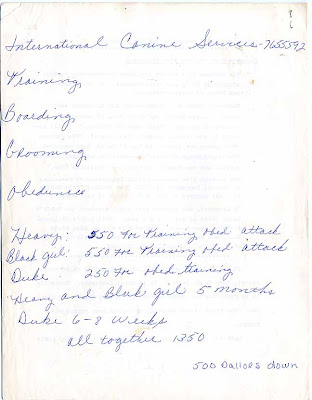 International Canine Services-7655592
Training
Boarding
Grooming
Obedience
Heavy: 550 for Training obed attack
Black girl: 550 for Training obed attack
Duke: 250 for obed training
Heavy and Black girl 5 months
Duke 6-8 weeks
all together 1350
500 Dalloes down